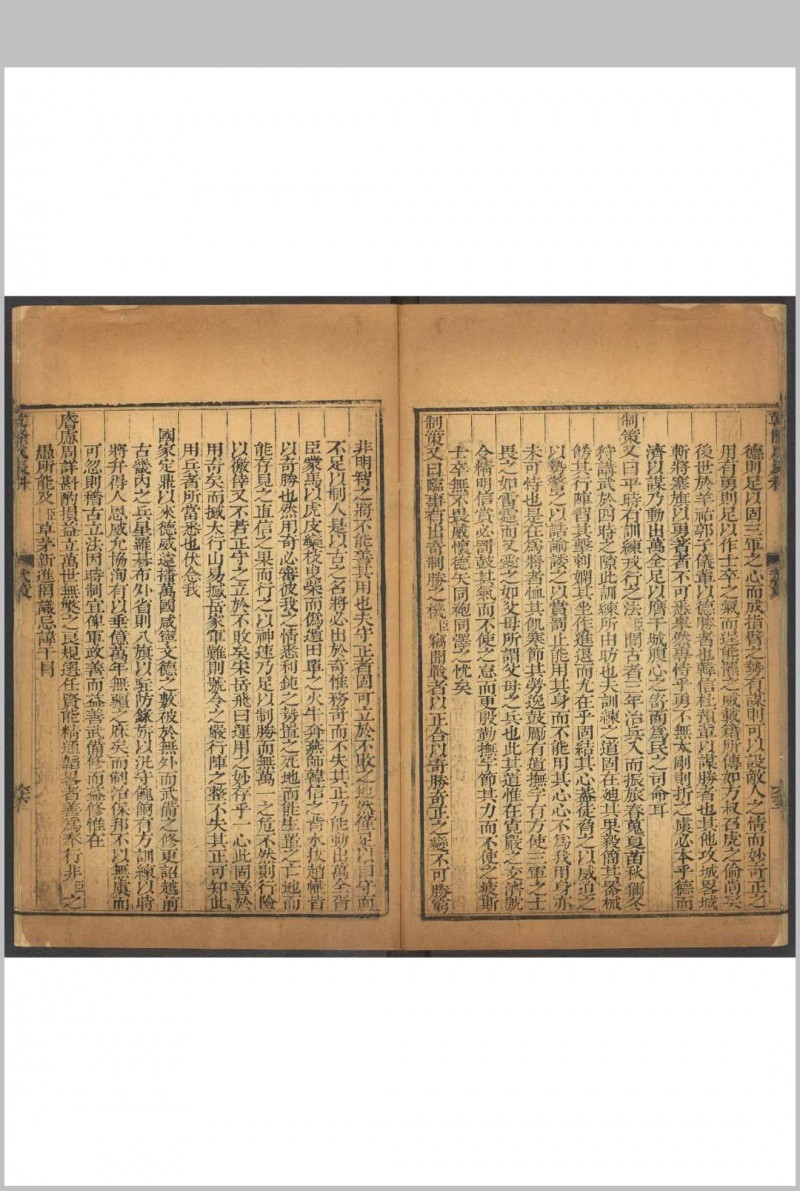 德則足以固三軍之心而成指臂之勢有謀則可以設敵人之情而妙奇正之
用有勇則足以作士卒之氣而逞能羆之威載籍所傳如方叔召虎之倫尚矣
後世於羊祜郭子儀輩以德勝者也韓信杜預輩以謀勝者也其他攻城畧城
斬將搴旗以勇著者不可悉舉然專恃乎勇不無太剛則折之虞必本乎德而
濟以謀乃動出萬全足以膺干城腹心之寄而爲民之司命耳
制策又曰平時有訓練戎行之法臣聞古者三年治兵入而振旅春蒐夏苗秋獮冬
狩講武於四時之隙此訓練所由助也夫訓練之道固在廵其果毅簡其器械
飭其行陣習其擊刺嫻其坐作進退而尤在乎固結其心蓋徒脅之以威迫之
以勢警之以誥諭誘之以賞罰止能用其身而不能用其心心不爲我用身亦
未可恃也是在爲將者恤其飢寒節其勞逸鼓勵有道撫字有方使三軍之士
畏之如雷霆而又愛之如父母所謂父母之兵也此其道惟在寬嚴之交濟號
令精明信賞必罰鼓其氣而不使之怠而更殷勤撫字節其力而不使之疲斯
士卒無不畏威懷德矢同袍同澤之忱矣
制策又曰臨事有出奇制勝之機臣竊聞戰者以正合以奇勝奇正之變不可勝窮
非明智之將不能善其用也夫守正者固可立於不敗之地然僅足以自守而
不足以制人是以古之名將必出於奇惟務奇而不失其正乃能動出萬全胥
臣蒙馬以虎皮欒枝曳柴而僞遁田單之火牛奔燕師韓信之背水拔趙幟皆
以奇勝也然用奇必審彼我之情悉利鈍之勢置之死地而能生置之亡地而
能存見之直信之果而行之以神速乃足以制勝而無萬一之危不然則行險
以徼倖又不若正守之立於不敗矣宋岳飛曰運用之妙存乎一心此固善於
用奇矣而撼太行山易撼岳家軍難則號令之嚴行陣之整不失其正可知此
用兵者所當悉也伏念我
國家定鼎以來德威遠播萬國咸寧文德之敷被於無外而武備之修更詔越前
古畿內之兵星羅碁布外省則八旗以駐防綠旂以汛守餽餉有方訓練以時
將弁得人恩威允協洵有以垂億萬年無疆之庥矣而制治保邦不以無虞而
可忽則稽古立法因時制宜俾軍政善而益善武備修而益修惟在
睿慮周詳斟酌損益立萬世無弊之良規選任賢能精通韜畧者善爲奉行非臣之
愚所能及臣草茅新進罔識忌諱干冒